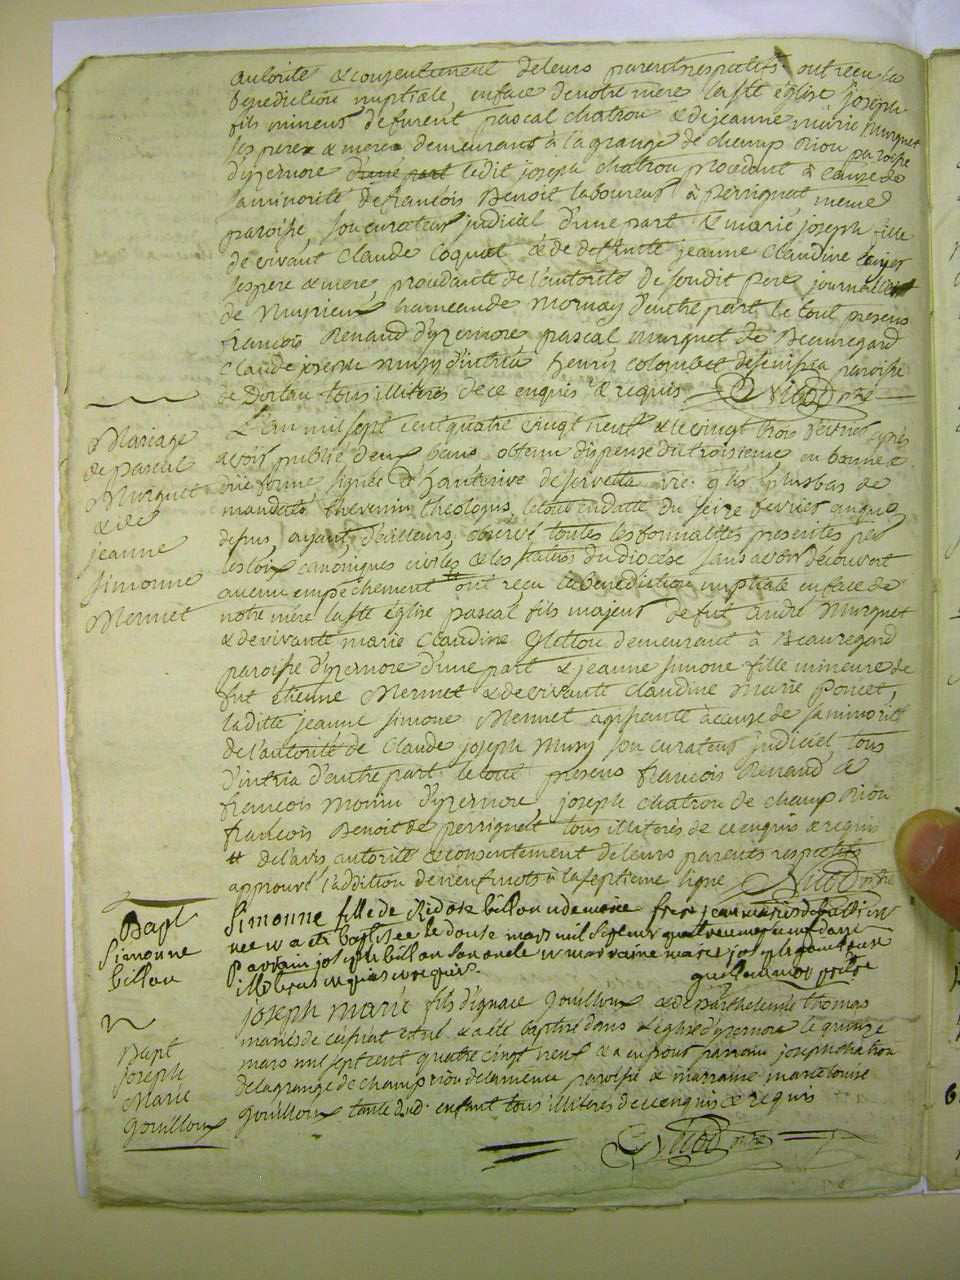 autorité & consentement de leurs parents respectifs ont recu la
benediction nuptiale en face de notre mere la ste église joseph
fils mineur de furent pascal chatron & de jeanne marie murquet
ses pere & mere demeurant à la grange de champ Riou paroisse
d'yzernore ledit joseph chatron procedant à cause de
sa minorité de francois Benoit laboureur à perrignat meme
paroisse son curateur judiciel d'une part & marie joseph fille
de vivant Claude Coquet & de deffunte jeanne Claudine
ses pere & mere procedante de l'autorité de son dit pere journallier
de hameau de Mornay d'autre part le tout presens
francois Renaud d'yzernore pascal murquet de Beauregard
Claude joseph musy d'intria henri colombet de paroisse
de Dortan tous illiterés de ce enquis & requis Nicod ptre
L'an mil sept cent quatre vingt neuf & le vingt trois fevrier après
avoir publié deux bans obtenu dispense du troisieme en bonne &
due forme signée vic. g. et plus bas de
mandato thevenin theologus, le tout en datte du seize fevrier an que
depuis ayant d'ailleurs observé toutes les formalités presentés par
les loix canoniques civiles & les statuts du diocèse sans avoir découvert
aucun empechement # ont reçu la benediction nuptiale en face de
notre mère la ste Eglise pascal fils majeur de fut andré Murquet
& de vivante marie Claudine Glettou demeurant à Beauregard
paroisse d'yzernore d'une part & jeanne simone fille mineure de
fut étienne Mermet & de vivante claudine Marie Poncet,
laditte jeanne simone Mermet agissante à cause de sa minorité
de l'autorité de Claude joseph Musy son curateur judiciel tous
d'intria d'autre part le tout presens francois Renaud &
francois Monin d'yzernore, joseph chatron de champ Riou
francois Benoit de perrignat tous illiterés de ce enquis & requis
# de l'avis autorité & consentement de leurs parents respectifs
approuvé l'addition de neuf mots à la septieme ligne Nicod ptre
Mariage
de pascal
Murquet
& de
jeanne
simonne
Mermet
Simonne fille de billon
née et a été baptisée le douse mars mil sept cent quatre vingt neuf
parrain joseph billon son oncle et marraine marie josephe
illiteres enquis et requis. prêtre
Bapt
Simonne
billon
joseph marie fils d'ignace Gouilloux & de Barthelemie thomas
mariés de & a été baptisé dans l'église d'yzernore le quinze
mars mil sept cent quatre vingt neuf & a eu pour parrain joseph chatron
de la grange de champ riou de la meme paroisse & marraine marie
Gouilloux tante dud. enfant tous illiterés de ce enquis & requis
Nicod ptre
Bapt
joseph
Marie
Gouilloux